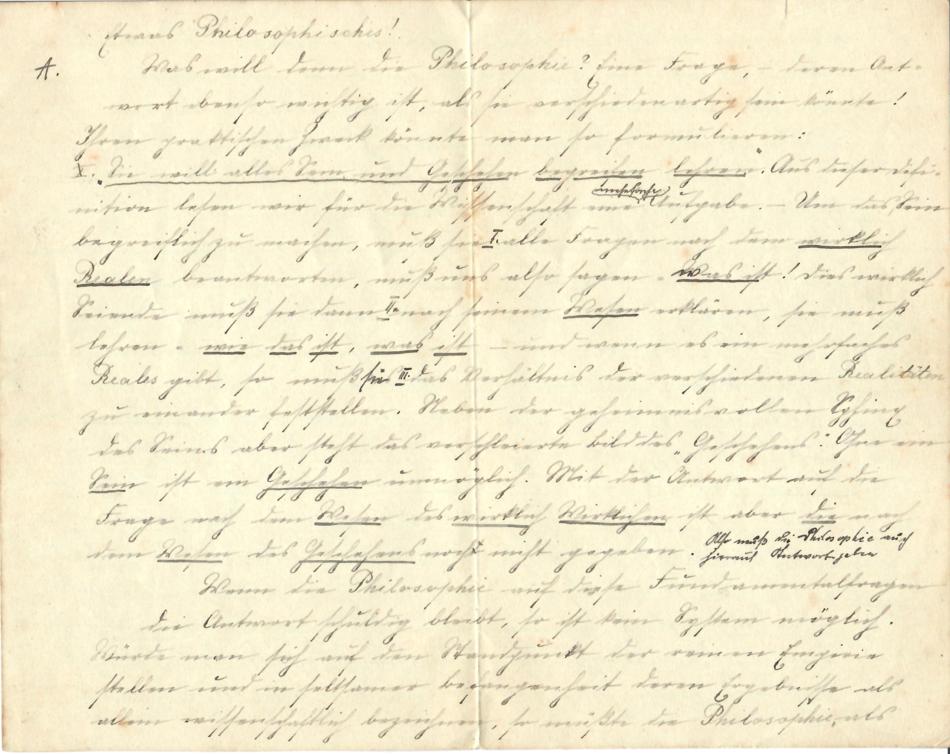 Etwas Philosophisches!
A. Was will denn die Philosophie? Eine Frage, – deren Ant-
wort ebenso wichtig ist, als sie verschiedenartig sein könnte!
Ihren praktischen Zweck könnte man so formulieren:
X. „Sie will alles Sein und Geschehen begreifen lehren“. Aus dieser Defi-
nition lesen wir für die Wissenschaft eine mehrfache Aufgabe. – Um das Sein
begreiflich zu machen, muß sie I. alle Fragen nach dem wirklich
Realen beantworten, muß uns also sagen – was ist! Dies wirklich
Seiende muß sie dann II. nach seinem Wesen erklären, sie muß
lehren – wie das ist, was ist – und wenn es ein mehrfaches
Reales gibt, so muß sie III. das Verhältnis der verschiedenen Realitäten
zu einander feststellen. Neben der geheimnisvollen Sphinx
des Seins aber steht das verschleierte Bild des „Geschehens“. Ohne ein
Sein ist ein Geschehen unmöglich. Mit der Antwort auf die
Frage nach dem Wesen des wirklich Wirklichen ist aber die nach
dem Wesen des Geschehens noch nicht gegeben. Also muß die Philosophie auch
hierauf Antwort geben
Wenn die Philosophie auf diese Fundamentalfragen
die Antwort schuldig bleibt, so ist kein System möglich.
Würde man sich auf den Standpunkt der reinen Empirie
stellen und in seltsamer Befangenheit deren Ergebnisse als
allein wissenschaftlich bezeichnen, so müßte die Philosophie, als